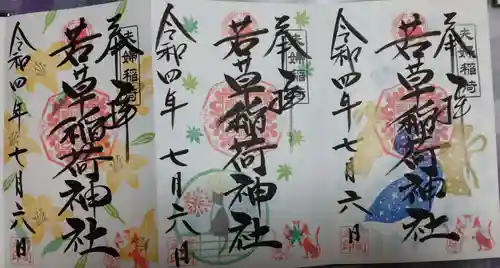 奉拝
夫婦稲荷
若草稲荷神社
令和四年 七月六日
奉拝
夫婦稲荷
若草稲荷神社
令和四年 七月六日
奉拝
夫婦稲荷
若草稲荷神社
令和四年 七月六日